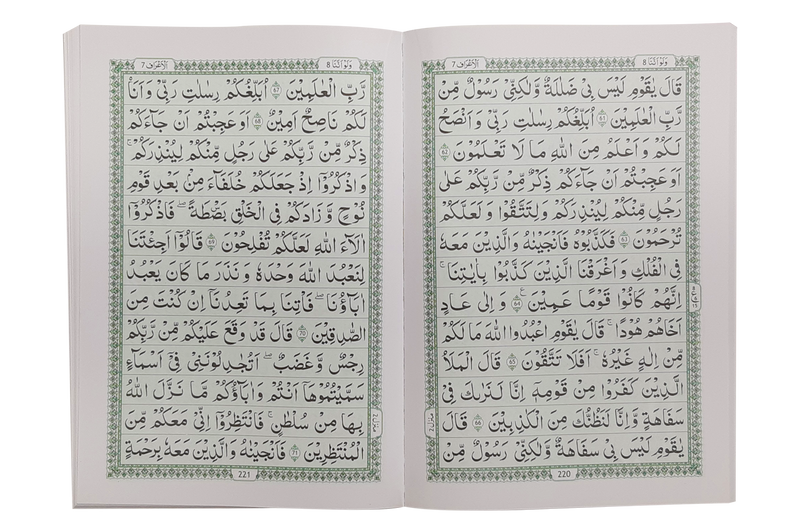 وَلَوْ اَنَّنَا 8
اَلْاَعْرَاف 7
قَالَ يٰقَوْمِ لَيْسَ بِىْ ضَلٰلَةٌ وَّلٰكِنِّىْ رَسُوْلٌ مِّنْ
رَّبِّ الْعٰلَمِيْنَ ﴿61﴾ اُبَلِّغُكُمْ رِسٰلٰتِ رَبِّىْ وَاَنْصَحُ
لَكُمْ وَاَعْلَمُ مِنَ اللّٰهِ مَا لَا تَعْلَمُوْنَ ﴿62﴾
اَوَعَجِبْتُمْ اَنْ جَآءَكُمْ ذِكْرٌ مِّنْ رَّبِّكُمْ عَلٰى
رَجُلٍ مِّنْكُمْ لِيُنْذِرَكُمْ وَلِتَتَّقُوْا وَلَعَلَّكُمْ
تُرْحَمُوْنَ ﴿63﴾ فَكَذَّبُوْهُ فَاَنْجَيْنٰهُ وَالَّذِيْنَ مَعَهٗ
فِى الْفُلْكِ وَاَغْرَقْنَا الَّذِيْنَ كَذَّبُوْا بِاٰيٰتِنَا ؕ
اِنَّهُمْ كَانُوْا قَوْمًا عَمِيْنَ ﴿64﴾ وَاِلٰى عَادٍ
اَخَاهُمْ هُوْدًا ؕ قَالَ يٰقَوْمِ اعْبُدُوا اللّٰهَ مَا لَكُمْ
مِّنْ اِلٰهٍ غَيْرُهٗ ؕ اَفَلَا تَتَّقُوْنَ ﴿65﴾ قَالَ الْمَلَاُ
الَّذِيْنَ كَفَرُوْا مِنْ قَوْمِهٖۤ اِنَّا لَنَرٰىكَ فِىْ
سَفَاهَةٍ وَّاِنَّا لَنَظُنُّكَ مِنَ الْكٰذِبِيْنَ ﴿66﴾ قَالَ
يٰقَوْمِ لَيْسَ بِىْ سَفَاهَةٌ وَّلٰكِنِّىْ رَسُوْلٌ مِّنْ
220
وَلَوْ اَنَّنَا 8
اَلْاَعْرَاف 7
رَّبِّ الْعٰلَمِيْنَ ﴿67﴾ اُبَلِّغُكُمْ رِسٰلٰتِ رَبِّىْ وَاَنَا
لَكُمْ نَاصِحٌ اَمِيْنٌ ﴿68﴾ اَوَعَجِبْتُمْ اَنْ جَآءَكُمْ
ذِكْرٌ مِّنْ رَّبِّكُمْ عَلٰى رَجُلٍ مِّنْكُمْ لِيُنْذِرَكُمْ ؕ
وَاذْكُرُوْۤا اِذْ جَعَلَكُمْ خُلَفَآءَ مِنْۢ بَعْدِ قَوْمِ
نُوْحٍ وَّزَادَكُمْ فِى الْخَلْقِ بَصْۜطَةً ۚ فَاذْكُرُوْۤا
اٰلَآءَ اللّٰهِ لَعَلَّكُمْ تُفْلِحُوْنَ ﴿69﴾ قَالُوْۤا اَجِئْتَنَا
لِنَعْبُدَ اللّٰهَ وَحْدَهٗ وَنَذَرَ مَا كَانَ يَعْبُدُ
اٰبَآؤُنَا ۚ فَاْتِنَا بِمَا تَعِدُنَاۤ اِنْ كُنْتَ مِنَ
الصّٰدِقِيْنَ ﴿70﴾ قَالَ قَدْ وَقَعَ عَلَيْكُمْ مِّنْ رَّبِّكُمْ
رِجْسٌ وَّغَضَبٌ ؕ اَتُجَادِلُوْنَنِىْ فِىْۤ اَسْمَآءٍ
سَمَّيْتُمُوْهَاۤ اَنْتُمْ وَاٰبَآؤُكُمْ مَّا نَزَّلَ اللّٰهُ
بِهَا مِنْ سُلْطٰنٍ ؕ فَانْتَظِرُوْۤا اِنِّىْ مَعَكُمْ مِّنَ
الْمُنْتَظِرِيْنَ ﴿71﴾ فَاَنْجَيْنٰهُ وَالَّذِيْنَ مَعَهٗ بِرَحْمَةٍ
221